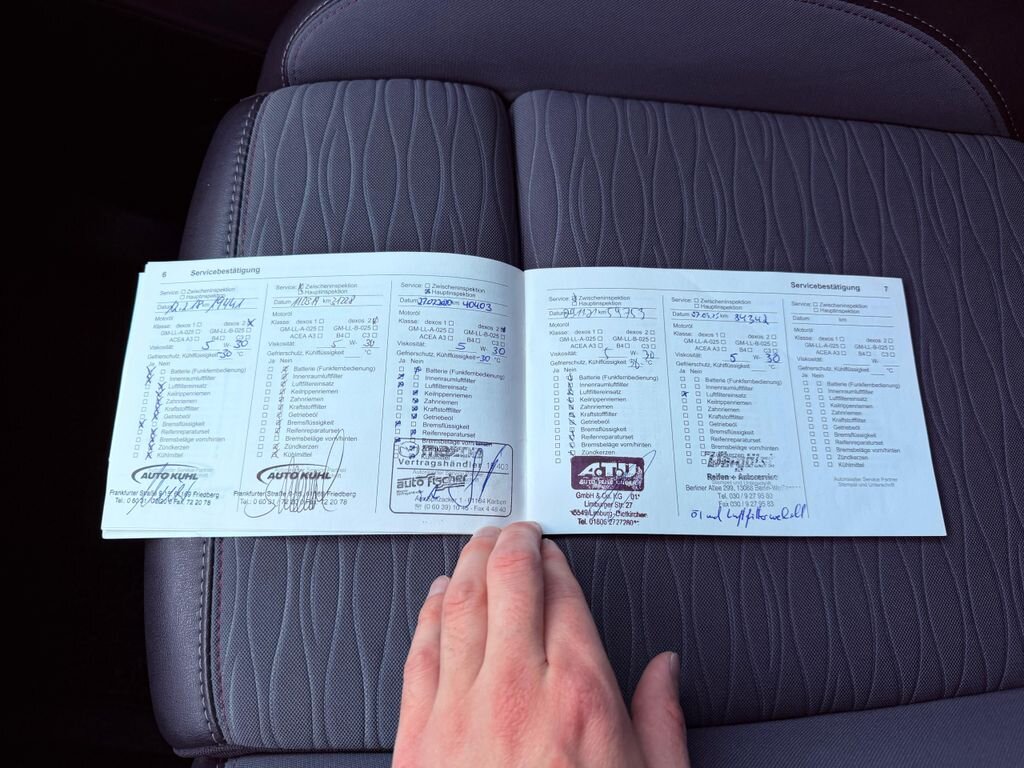 6 Servicebestätigung
Service: □ Zwischeninspektion
□ Hauptinspektion
Datum km 19441
Motoröl
Klasse: dexos 1 □ dexos 2
GM-LL-A-025 □ GM-LL-B-025 □
ACEA A3 □ B4 □ C3 □
Viskosität: 5 W- 30
Gefrierschutz, Kühlflüssigkeit -30 °C
Ja Nein
Batterie (Funkfernbedienung)
Innenraumluftfilter
Luftfiltereinsatz
Keilrippenriemen
Zahnriemen
Kraftstofffilter
Getriebeöl
Bremsflüssigkeit
Reifenreparaturset
Bremsbeläge vorn/hinten
Zündkerzen
Kühlmittel
AUTO KÜHL
Frankfurter Straße 9-15, 61169 Friedberg
Service: Zwischeninspektion
□ Hauptinspektion
Datum km
Motoröl
Klasse: dexos 1 □ dexos 2
GM-LL-A-025 □ GM-LL-B-025 □
ACEA A3 □ B4 □ C3 □
Viskosität: 5 W- 30
Gefrierschutz, Kühlflüssigkeit °C
Ja Nein
Batterie (Funkfernbedienung)
Innenraumluftfilter
Luftfiltereinsatz
Keilrippenriemen
Zahnriemen
Kraftstofffilter
Getriebeöl
Bremsflüssigkeit
Reifenreparaturset
Bremsbeläge vorn/hinten
Zündkerzen
Kühlmittel
AUTO KÜHL
Frankfurter Straße 9-15, 61169 Friedberg
Service: □ Zwischeninspektion
Hauptinspektion
Datum km 40403
Motoröl
Klasse: dexos 1 □ dexos 2
GM-LL-A-025 □ GM-LL-B-025 □
ACEA A3 □ B4 □ C3 □
Viskosität: 5 W- 30
Gefrierschutz, Kühlflüssigkeit -30 °C
Ja Nein
Batterie (Funkfernbedienung)
Innenraumluftfilter
Luftfiltereinsatz
Keilrippenriemen
Zahnriemen
Kraftstofffilter
Getriebeöl
Bremsflüssigkeit
Reifenreparaturset
Bremsbeläge vorn/hinten
Vertragshändler
auto fischer
Karben
Fax 4 48 40
Servicebestätigung 7
Service: Zwischeninspektion
□ Hauptinspektion
Datum km 59753
Motoröl
Klasse: dexos 1 □ dexos 2 □
GM-LL-A-025 □ GM-LL-B-025 □
ACEA A3 □ B4 □ C3 □
Viskosität: 5 W- 30
Gefrierschutz, Kühlflüssigkeit °C
Ja Nein
Batterie (Funkfernbedienung)
Innenraumluftfilter
Luftfiltereinsatz
Keilrippenriemen
Zahnriemen
Kraftstofffilter
Getriebeöl
Bremsflüssigkeit
Reifenreparaturset
Bremsbeläge vorn/hinten
Zündkerzen
A.T.U
GmbH & Co. KG
Limburger Str. 27
Service: □ Zwischeninspektion
□ Hauptinspektion
Datum km 84342
Motoröl
Klasse: dexos 1 □ dexos 2 □
GM-LL-A-025 □ GM-LL-B-025 □
ACEA A3 □ B4 □ C3 □
Viskosität: 5 W- 30
Gefrierschutz, Kühlflüssigkeit °C
Ja Nein
Batterie (Funkfernbedienung)
Innenraumluftfilter
Luftfiltereinsatz
Keilrippenriemen
Zahnriemen
Kraftstofffilter
Getriebeöl
Bremsflüssigkeit
Reifenreparaturset
Bremsbeläge vorn/hinten
Reifen + Autoservice
Berliner Allee 299, 13088 Berlin
Tel. 030 / 9 27 95 80
Öl und Luftfilter
Service: □ Zwischeninspektion
□ Hauptinspektion
Datum km
Motoröl
Klasse: dexos 1 □ dexos 2 □
GM-LL-A-025 □ GM-LL-B-025 □
ACEA A3 □ B4 □ C3 □
Viskosität: W-
Gefrierschutz, Kühlflüssigkeit °C
Ja Nein
Batterie (Funkfernbedienung)
Innenraumluftfilter
Luftfiltereinsatz
Keilrippenriemen
Zahnriemen
Kraftstofffilter
Getriebeöl
Bremsflüssigkeit
Reifenreparaturset
Bremsbeläge vorn/hinten
Zündkerzen
Kühlmittel
Autorisierter Service Partner
Stempel und Unterschrift